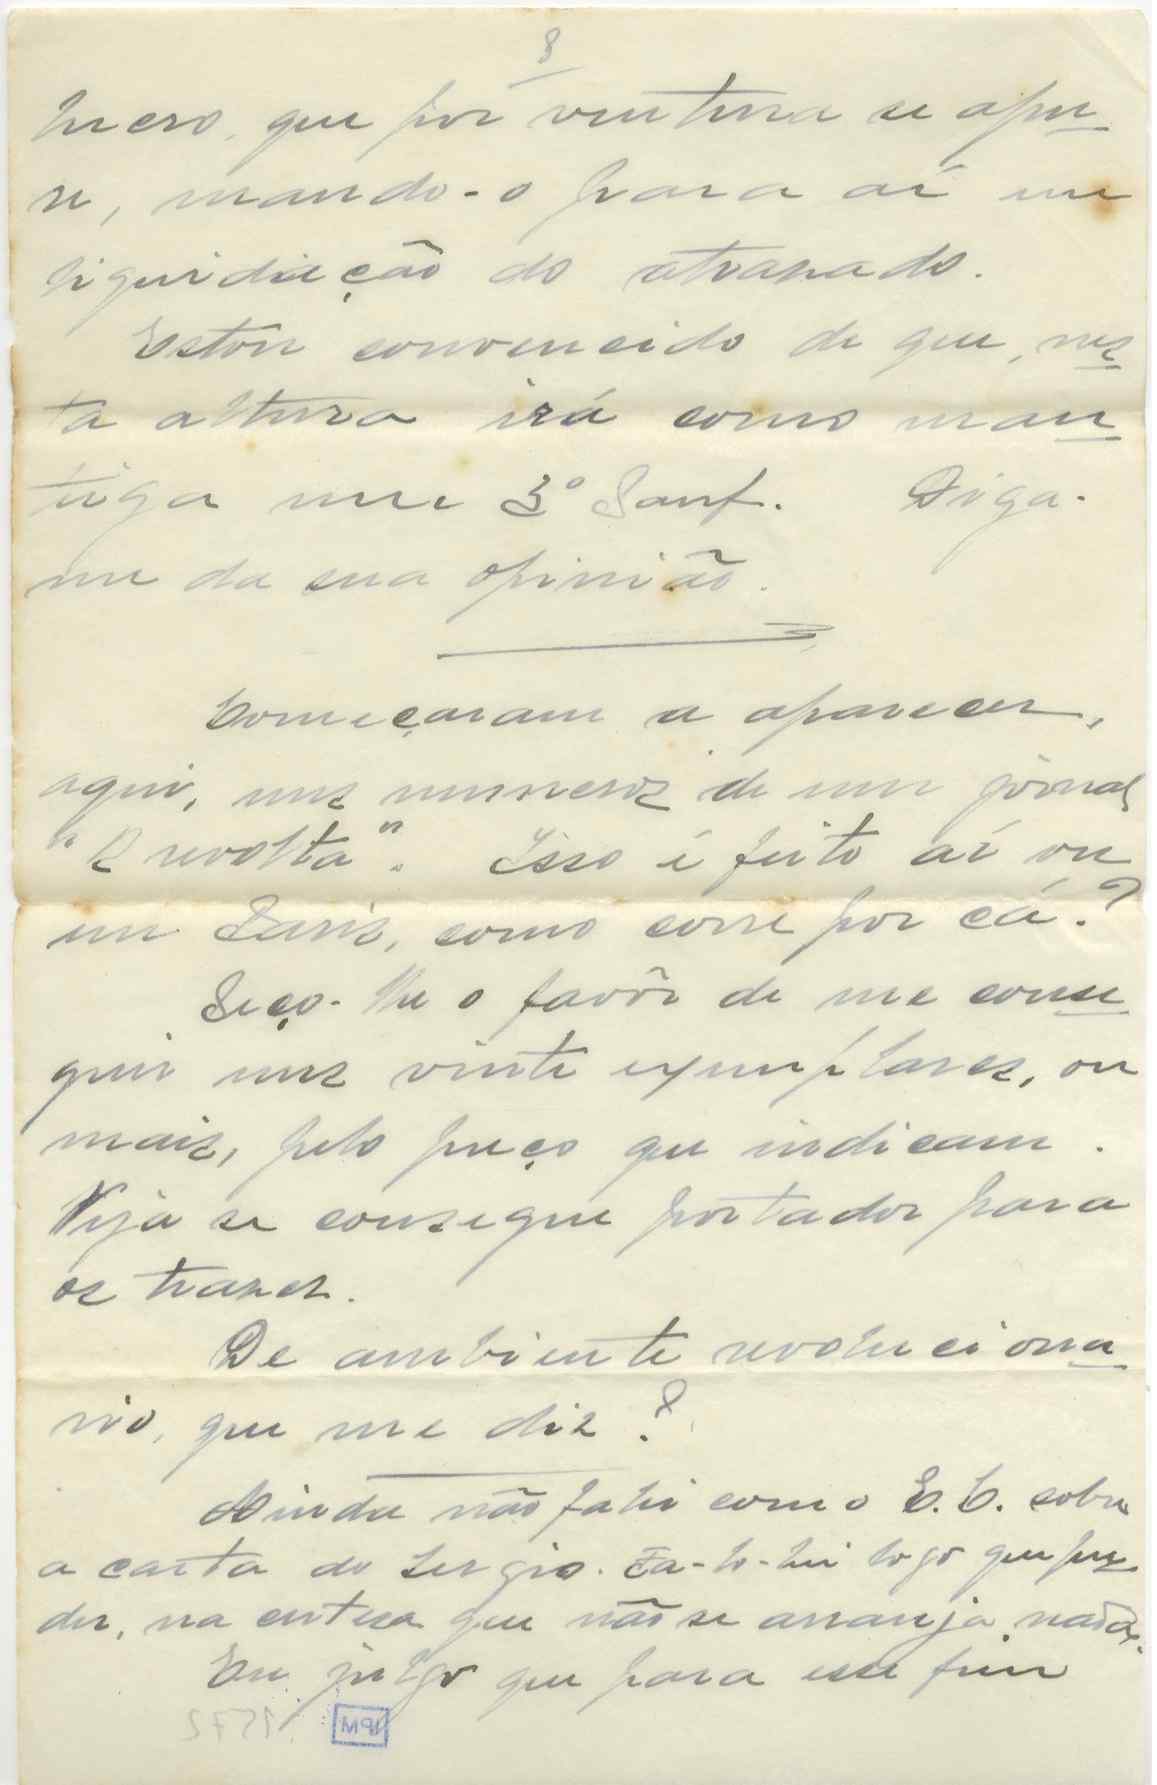 8
lucro, que por ventura se apu
re, mando-o para aí em
liquidação do atrasado.
Estou convencido de que, nes
ta altura irá como man
teiga um 3º Panf. Diga-
me da sua opinião.
Começaram a aparecer,
aqui, uns numeros de um jornal
"A revolta". Isso é feito aí ou
em Paris, como corre por cá?
Peço-lhe o favôr de me conse
guir uns vinte exemplares, ou
mais, pelo preço que indicam.
Veja se consegue portador para
os trazer.
De ambiente revoluciona
rio, que me diz?
Ainda não falei com o E.C. sobre
a carta do Sergio. Fa-lo-hei logo que pu
der, na certeza que não se arranja nada.
Eu julgo que para esse fim
1572
MPM